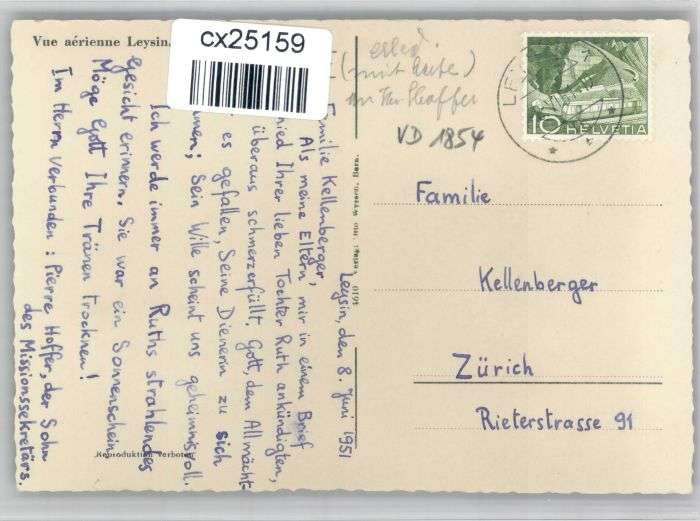 Vue aérienne Leysin.
cx25159
(mit
VD 1854
LEY
10 HELVETIA
Leysin, den 8. Juni 1951
Familie Kellenberger,
Als meine Eltern mir in einem Brief
Ihrer lieben Tochter Ruth ankündigten,
überaus schmerzerfüllt. Gott, dem Allmächt-
es gefallen, Seine Dienerin zu sich
Sein Wille scheint uns geheimnisvoll.
Ich werde immer an Ruths strahlendes
Gesicht erinnern. Sie war ein Sonnenschein
Möge Gott Ihre Tränen trocknen!
Im Herrn verbunden: Pierre Hoffer, der Sohn
des Missionssekretärs.
Reproduktion verboten
Familie
Kellenberger
Zürich
Rieterstrasse 91